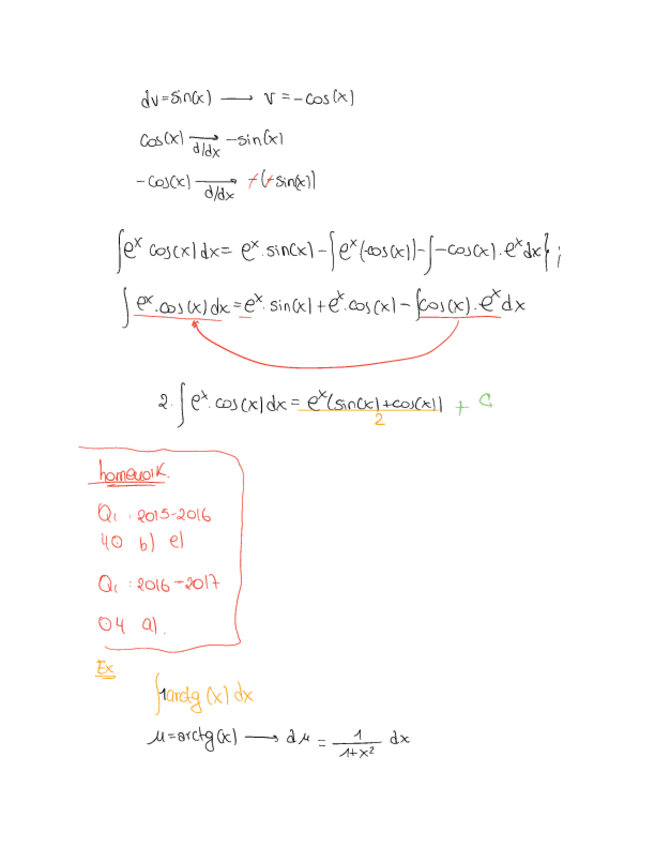 dv=sin(x) → v = -cos(x)
cos(x) →d/dx -sin(x)
-cos(x) →d/dx +(+sin(x))
∫e^x cos(x) dx = e^x . sin(x) - {e^x (-cos(x)) - ∫-cos(x) . e^x dx} ;
∫e^x . cos(x) dx = e^x . sin(x) + e^x . cos(x) - ∫cos(x) . e^x dx
2. ∫e^x . cos(x) dx = e^x (sin(x) + cos(x)) / 2 + C
homework.
Q1 : 2015-2016
40 b) e)
Q1 : 2016-2017
04 a).
Ex
∫1 arctg (x) dx
μ=arctg(x) → dμ = 1/(1+x²) dx